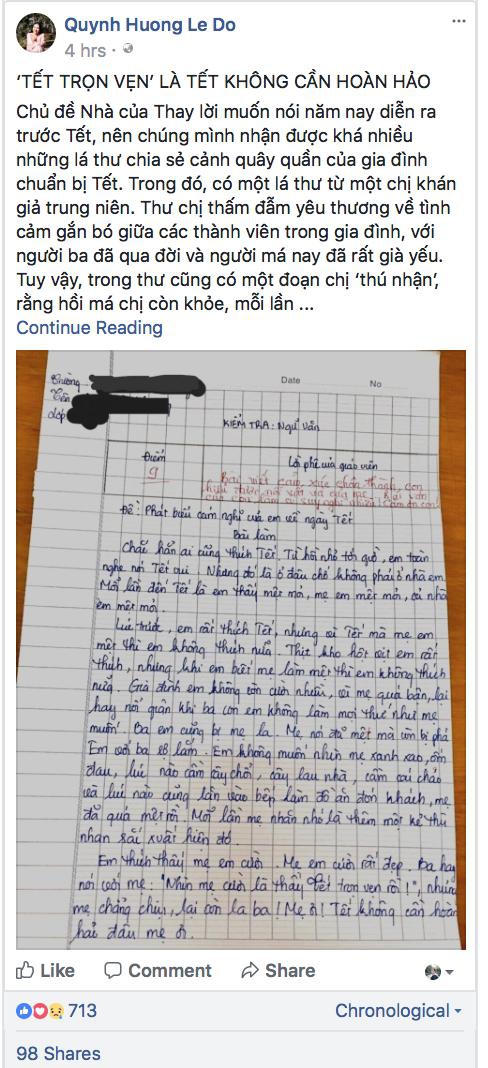 Quynh Huong Le Do
4 hrs ·
‘TẾT TRỌN VẸN’ LÀ TẾT KHÔNG CẦN HOÀN HẢO
Chủ đề Nhà của Thay lời muốn nói năm nay diễn ra
trước Tết, nên chúng mình nhận được khá nhiều
những lá thư chia sẻ cảnh quây quần của gia đình
chuẩn bị Tết. Trong đó, có một lá thư từ một chị khán
giả trung niên. Thư chị thấm đẫm yêu thương về tình
cảm gắn bó giữa các thành viên trong gia đình, với
người ba đã qua đời và người má nay đã rất già yếu.
Tuy vậy, trong thư cũng có một đoạn chị ‘thú nhận’,
rằng hồi má chị còn khỏe, mỗi lần ...
Continue Reading
Trường
Date No
Tên
Lớp
KIỂM TRA: Ngữ Văn
Điểm Lời phê của giáo viên
9 Bài viết cảm xúc chân thành, con
Đề: Phát biểu cảm nghĩ của em về ngày Tết
Bài làm
Chắc hẳn ai cũng thích Tết. Từ hồi nhỏ tới giờ, em toàn
nghe nói Tết vui. Nhưng đó là ở đâu chứ không phải ở nhà em.
Mỗi lần đến Tết là em thấy mệt mỏi, mẹ em mệt mỏi, cả nhà
em mệt mỏi.
Lúc trước, em rất thích Tết, nhưng vì Tết mà mẹ em
mệt thì em không thích nữa. Thịt kho hột vịt em rất
thích, nhưng khi em biết mẹ làm mệt thì em không thích
nữa. Gia đình em không còn cười nhiều, vì mẹ quá bận, lại
hay nổi quạu khi ba con em không làm mọi thứ như mẹ
muốn. Ba em cũng bị mẹ la. Mẹ nói đã mệt mà còn bị phá
Em với ba sợ lắm. Em không muốn nhìn mẹ xanh xao, ốm
đau, lúc nào cầm cây chổi, cây lau nhà, cằn cui cháo
và lúc nào cũng lẩn vào bếp làm đồ ăn đón khách, mẹ
đã quá mệt rồi. Mỗi lần mẹ nhăn nhó là thêm một kẻ thù
nhan sắc xuất hiện đó.
Em thích thấy mẹ em cười. Mẹ em cười rất đẹp. Ba hay
nói với mẹ: "Nhìn mẹ cười là thấy Tết trọn vẹn rồi!", nhưng
mẹ chẳng chịu, lại còn la ba! Mẹ ơi! Tết không cần hoàn
hải đâu mẹ ơi.
Like Comment Share
713 Chronological
98 Shares